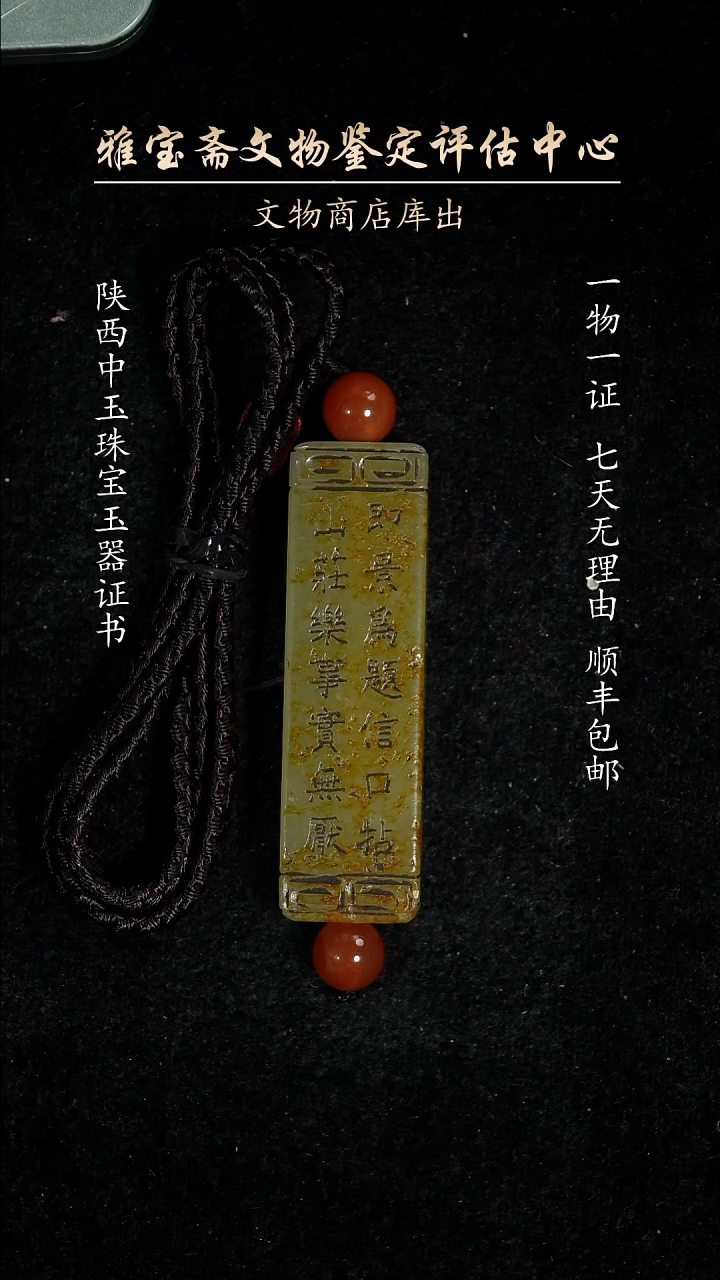 雅宝斋文物鉴定评估中心
文物商店库出
一物一证 七天无理由 顺丰包邮
陕西中玉珠宝玉器证书
即景為題信口拈
山莊樂事實無厭